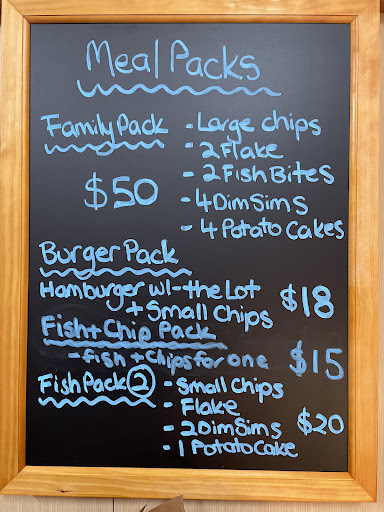 Meal Packs
Family Pack - Large chips
- 2 Flake
- 2 Fish Bites
$50
- 4 Dim Sims
- 4 Potato Cakes
Burger Pack
Hamburger w/-the Lot
+ Small Chips $18
Fish + Chip Pack
- fish + chips for one $15
Fish Pack 2 - Small Chips
- Flake
- 2 Dim Sims $20
- 1 Potato Cake